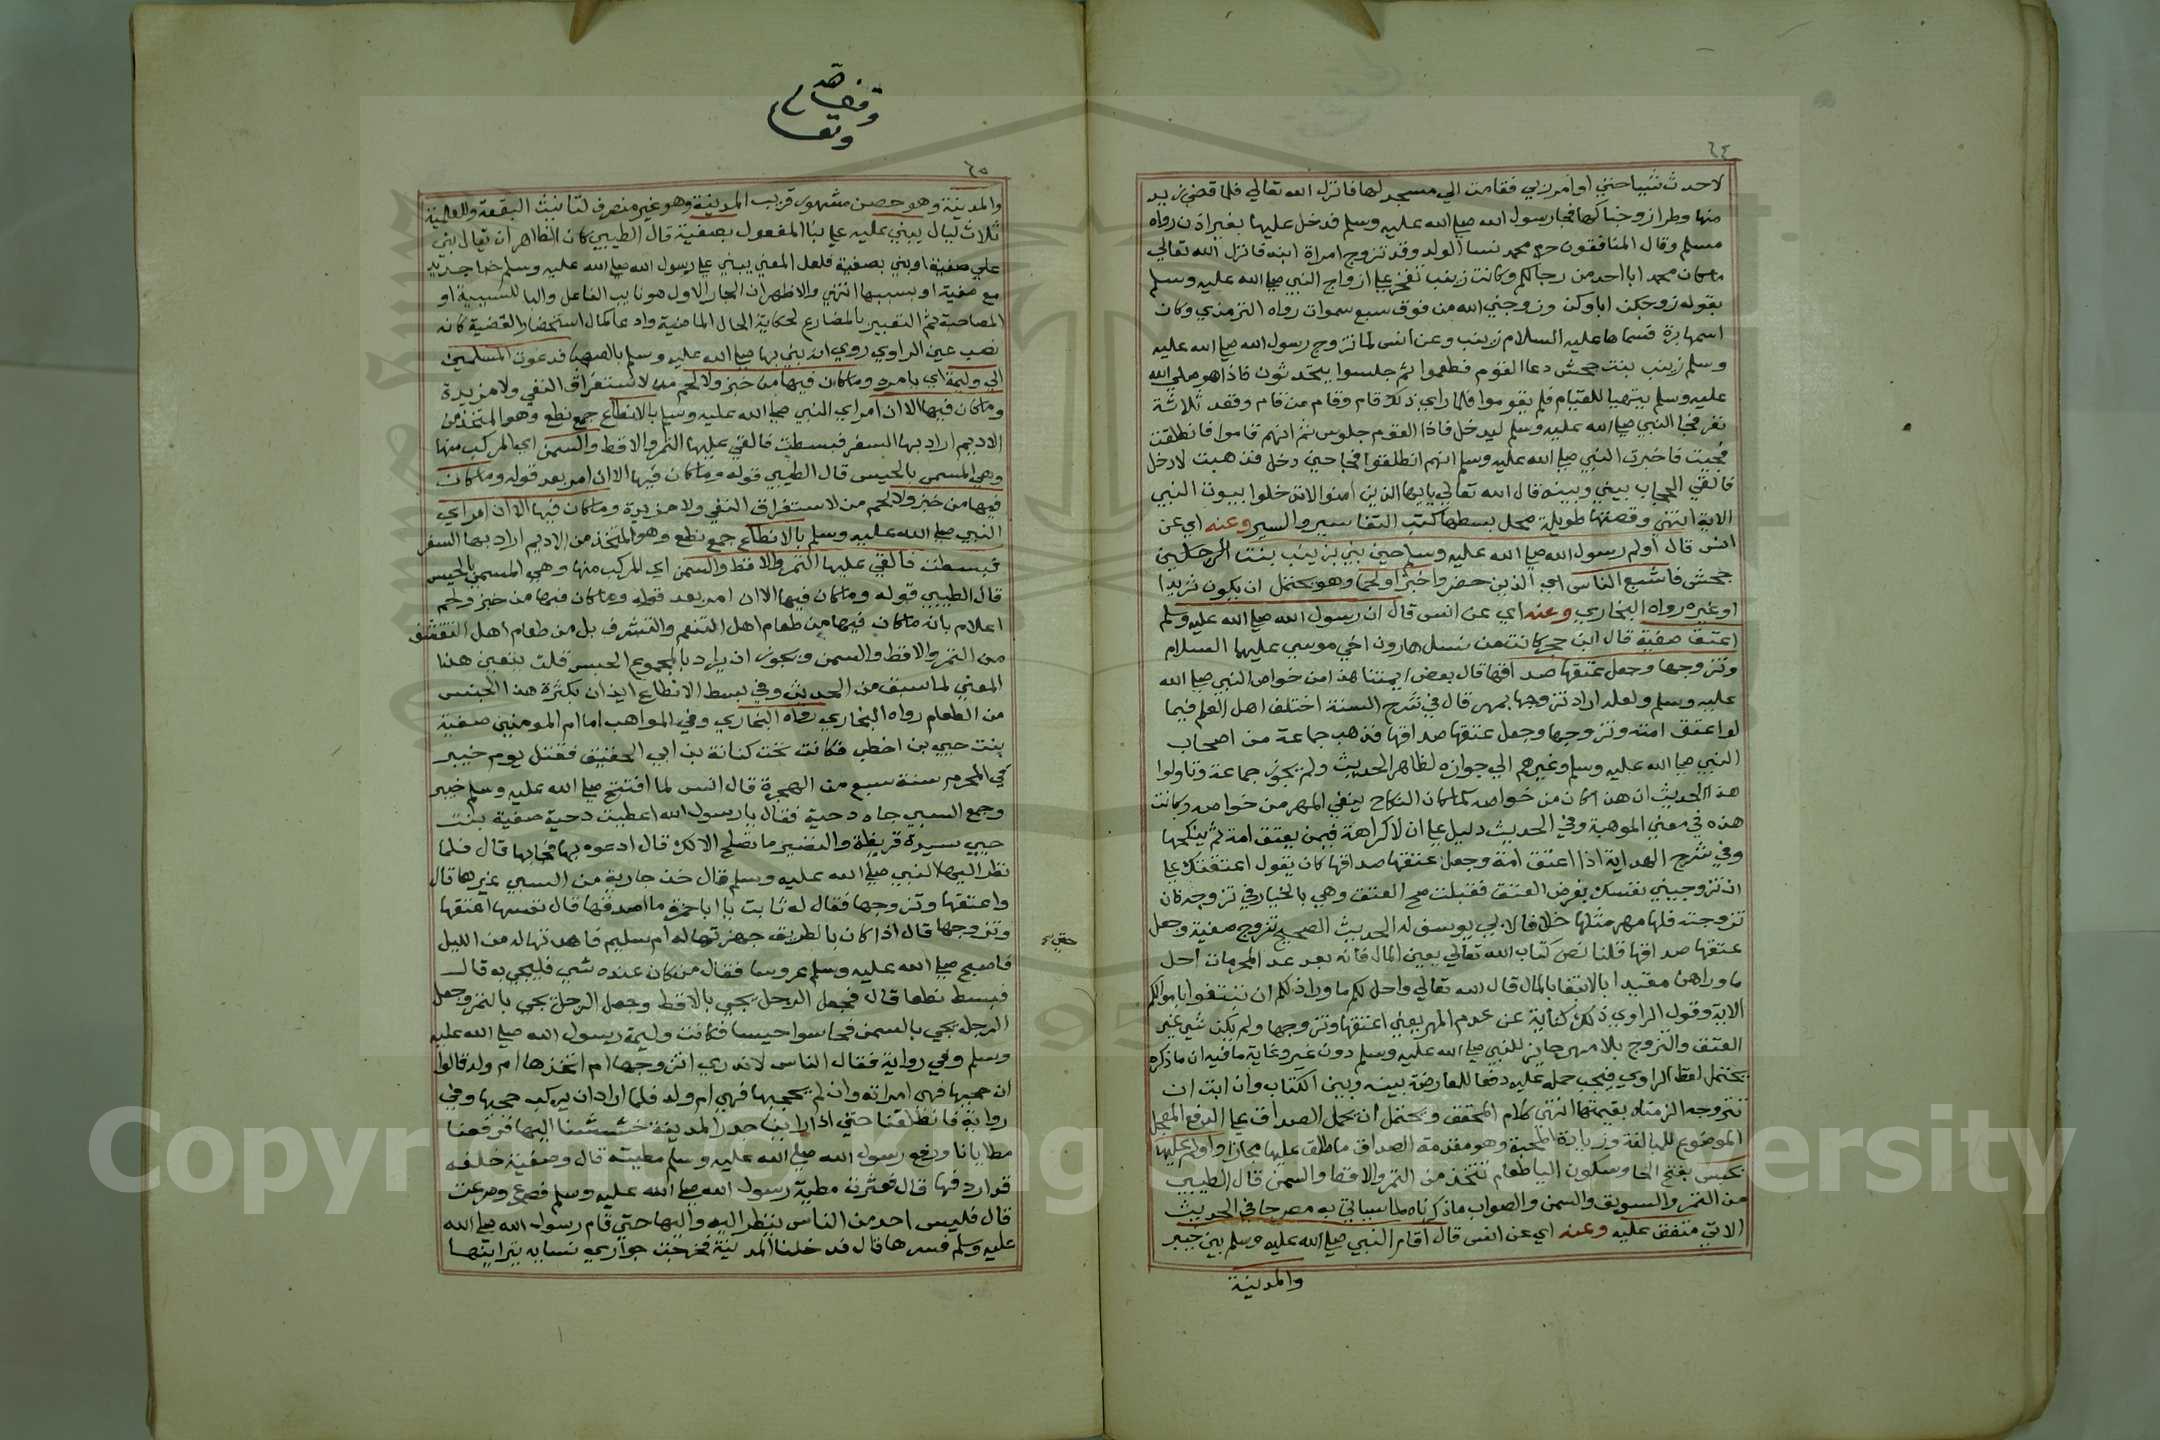 ٦٤
لاحدث شيئا حتي اوامر ربي فقامت الي مسجد لها فانزل الله تعالي فلما قضي زيد
منها وطرا زوجناكها فجا رسول الله صلي الله عليه وسلم فدخل عليها بغير اذن رواه
مسلم وقال المنافقون حرم محمد نسا الولد وقد تزوج امراة ابنه فانزل الله تعالي
ماكان محمد ابا احد من رجالكم وكانت زينب تفخر علي ازواج النبي صلي الله عليه وسلم
بقوله زوجكن اباوكن وزوجني الله من فوق سبع سموات رواه الترمذي وكان
اسمها برة فسماها عليه السلام زينب وعن انس لما تزوج رسول الله صلي الله عليه
وسلم زينب بنت جحش دعا القوم فطعموا ثم جلسوا يتحدثون فاذا هو صلي الله
عليه وسلم يتهيا للقيام فلم يقوموا فلما راي ذلك قام وقام من قام وقعد ثلاثة
نفر فجا النبي صلي الله عليه وسلم ليدخل فاذا القوم جلوس ثم انهم قاموا فانطلقت
فجيت فاخبرت النبي صلي الله عليه وسلم انهم انطلقوا فجا حتي دخل فذهبت لادخل
فالقي الحجاب بيني وبينه قال الله تعالي يايها الذين امنوا لاتدخلوا بيوت النبي
الاية انتهي وقصتها طويلة محل بسطها كتب التفاسير والسير وعنه اي عن
انس قال اولم رسول الله صلي الله عليه وسلم حين بني بزينب بنت الرجلين
جحش فاشبع الناس اي الذين حضروا خبزا ولحما وهو يحتمل ان يكون ثريدا
او غيره رواه البخاري وعنه اي عن انس قال ان رسول الله صلي الله عليه وسلم
اعتق صفية قال ابن حجر كانت من نسل هارون اخي موسي عليهما السلام
وتزوجها وجعل عتقها صداقها قال بعض ايمتنا هذا من خواص النبي صلي الله
عليه وسلم ولعله اراد تزوجها بمهر قال في شرح السنة اختلف اهل العلم فيما
لو اعتق امته وتزوجها وجعل عتقها صداقها فذهب جماعة من اصحاب
النبي صلي الله عليه وسلم وغيرهم الي جوازه لظاهر الحديث ولم يجوز جماعة وتاولوا
هذا الحديث ان هذا كان من خواصه كما كان النكاح بنفي المهر من خواصه وكانت
هذه في معني الموهبة وفي الحديث دليل علي ان لاكراهة فيمن يعتق امة ثم ينكحها
وفي شرح الهداية اذا اعتق امة وجعل عتقها صداقها كان يقول اعتقتك علي
ان تزوجيني نفسك بعوض العتق فقبلت صح العتق وهي بالخيار في تزوجه فان
تزوجته فلها مهر مثلها خلافا لابي يوسف له الحديث الصحيح تزوج صفية وجعل
عتقها صداقها قلنا نص كتاب الله تعالي بعين المال فانه بعد عد المحرمات احل
ما وراهن مقيدا بالابتغا بالمال قال الله تعالي واحل لكم ما وراذلكم ان تبتغوا باموالكم
الاية وقول الراوي ذلك كناية عن عدم المهر يعني اعتقها وتزوجها ولم يكن شي غير
العتق والتزوج بلا مهر جايز للنبي صلي الله عليه وسلم دون غيره وغاية ما فيه ان ما ذكره
يحتمل لفظ الراوي فيجب حمله عليه دفعا للمعارضة بينه وبين الكتاب وان ابت ان
تتزوجه الزمناه بقيمتها انتهي كلام المحقق ويحتمل ان يحمل الصداق علي الدفع المعجل
الموضوع للمبالغة وزيادة المحبة وهو مقدمة الصداق فاطلق عليها مجازا واولم عليها
بحيس بفتح الحا وسكون اليا طعام تتخذ من التمر والاقط والسمن قال الطيبي
من التمر والسويق والسمن والصواب ما ذكرناه لما سياتي به مصرحا في الحديث
الاتي متفق عليه وعنه اي عن انس قال اقام النبي صلي الله عليه وسلم بين خيبر
والمدينة
وقف لله
تعالي
٦٥
والمدينة وهو حصن مشهور قريب المدينة وهو غير منصرف لتانيث البقعة وللعلمية
ثلاث ليال يبني عليه علي بنا المفعول بصفية قال الطيبي كان الظاهر ان يقال بني
علي صفية او بني بصفية فلعل المعني يبني علي رسول الله صلي الله عليه وسلم خبا جديد
مع صفية او بسببها انتهي والاظهر ان الجار الاول هو نايب الفاعل والبا للسببية او
المصاحبة ثم التعبير بالمضارع لحكاية الحال الماضية وادعا كمال استحضار القضية كانه
نصب عين الراوي روي انه بني بها صلي الله عليه وسلم بالصهبا فدعوت المسلمين
الي وليمة اي بامره وماكان فيها من خبز ولا لحم من لاستغراق النفي ولا مزيدة
وماكان فيها الا ان امر اي النبي صلي الله عليه وسلم بالانطاع جمع نطع وهو المتخذ من
الاديم اراد بها السفر فبسطت فالقي عليها التمر والاقط والسمن اي المركب منها
وهي المسمي بالحيس قال الطيبي قوله وماكان فيها الا ان امر بعد قوله وماكان
فيها من خبز ولا لحم من لاستغراق النفي ولا مزيدة وماكان فيها الا ان امر اي
النبي صلي الله عليه وسلم بالانطاع جمع نطع وهو المتخذ من الاديم اراد بها السفر
فبسطت فالقي عليها التمر والاقط والسمن اي المركب منها وهي المسمي بالحيس
قال الطيبي قوله وماكان فيها الا ان امر بعد قوله وماكان فيها من خبز ولحم
اعلام بانه ماكان فيها من طعام اهل التنعم والتشرف بل من طعام اهل التقشف
من التمر والاقط والسمن ويجوز ان يراد بالمجموع الحيس قلت يتعين هذا
المعني لما سبق من الحديث وفي بسط الانطاع ايذان بكثرة هذا الجنس
من الطعام رواه البخاري رواه البخاري وفي المواهب اما ام المومنين صفية
بنت حيي بن اخطب فكانت تحت كنانة بن ابي الحقيق فقتل يوم خيبر
في المحرم سنة سبع من الهجرة قال انس لما افتتح صلي الله عليه وسلم خيبر
وجمع السبي جاه دحية فقال يا رسول الله اعطيت دحية صفية بنت
حيي سيدة قريظة والنضير ما تصلح الا لك قال ادعوه بها فجا بها قال فلما
نظر اليها النبي صلي الله عليه وسلم قال خذ جارية من السبي غيرها قال
واعتقها وتزوجها فقال له ثابت يا ابا حمزة ما اصدقها قال نفسها اعتقها
وتزوجها قال اذا كان بالطريق جهزتها له ام سليم فاهدتها له من الليل
فاصبح صلي الله عليه وسلم عروسا فقال من كان عنده شي فليجي به قال
فبسط نطعا قال فجعل الرجل يجي بالاقط وجعل الرجل يجي بالتمر وجعل
الرجل يجي بالسمن فحاسوا حيسا فكانت وليمة رسول الله صلي الله عليه
وسلم وفي رواية فقال الناس لاندري اتزوجها ام اتخذها ام ولد قالوا
ان حجبها فهي امراته وان لم يحجبها فهي ام ولد فلما اراد ان يركب حجبها وفي
رواية فانطلقنا حتي اذا راينا جدر المدينة خششنا اليها فرفعنا
مطايانا ورفع رسول الله صلي الله عليه وسلم مطيته قال وصفية خلفه
قد اردفها قال فعثرت مطية رسول الله صلي الله عليه وسلم فصرع وصرعت
قال فليس احد من الناس ينظر اليه واليها حتي قام رسول الله صلي الله
عليه وسلم فسترها قال فدخلنا المدينة فخرجت جواري نسايه يتراينها
Copyright © King Saud University